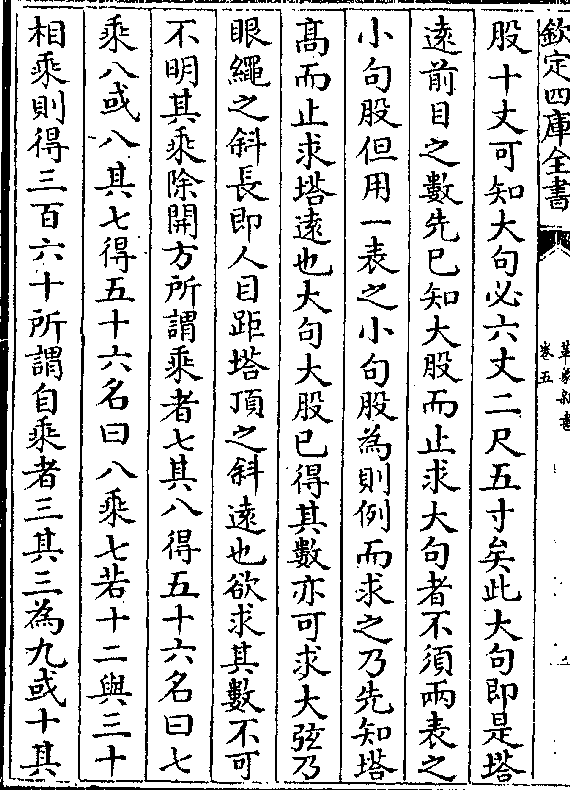 欽定四庫全書
卷五
股十丈可知大句必六丈二尺五寸矣此大句即是塔
逺前目之數先已知大股而止求大句者不須兩表之
小句股但用一表之小句股為則例而求之乃先知塔
髙而止求塔逺也大句大股已得其數亦可求大弦乃
眼繩之斜長即人目距塔頂之斜逺也欲求其數不可
不明其乘除開方所謂乘者七其八得五十六名曰七
乘八或八其七得五十六名曰八乘七若十二與三十
相乘則得三百六十所謂自乘者三其三為九或十其